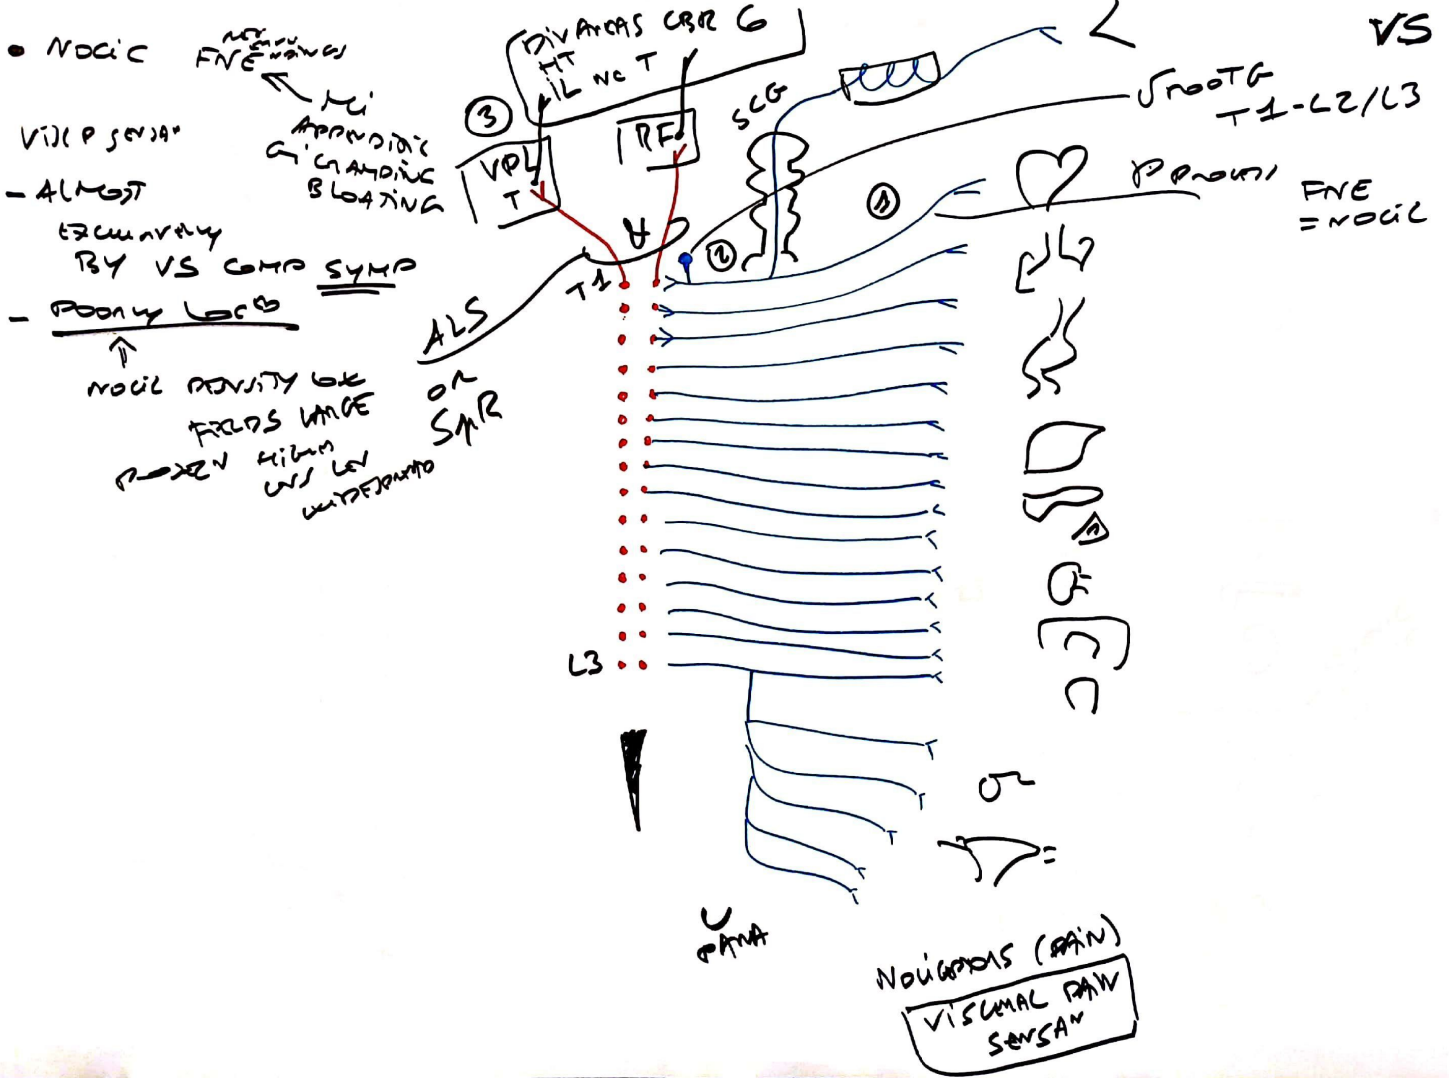 • NOCiC FNE ENDINGS
MI
APPENDICIC
GI CRAMPING
BLOATING
VISC P SENSAN
- ALMOST
EXCLUSIVELY
BY VS COMP SYMP
- POORLY LOC
NOCIC DENSITY LOW
FIELDS LARGE
PROJEN HIGHER
CNS LEV
WIDESPREAD
DIV AREAS CBR C
HT
IL NC T
3
VPL
T
RF
SCG
ALS
OR
SPR
T1
2
1
L3
VS
√ROOTG
T1-L2/L3
P PROCESS
FNE
=NOCIC
PARA
NOCICEPTORS (PAIN)
VISCERAL PAIN
SENSAN